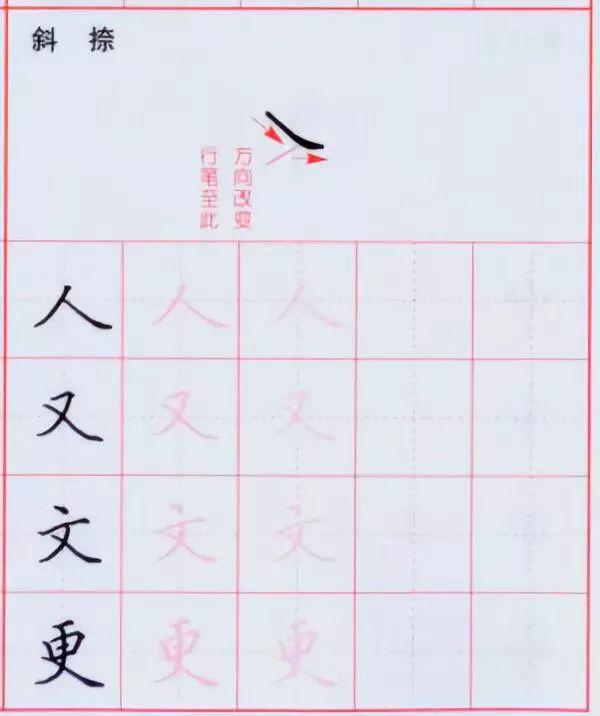 斜 捺
行笔至此
方向改变
人 人 人
又 又 又
文 文 文
更 更 更